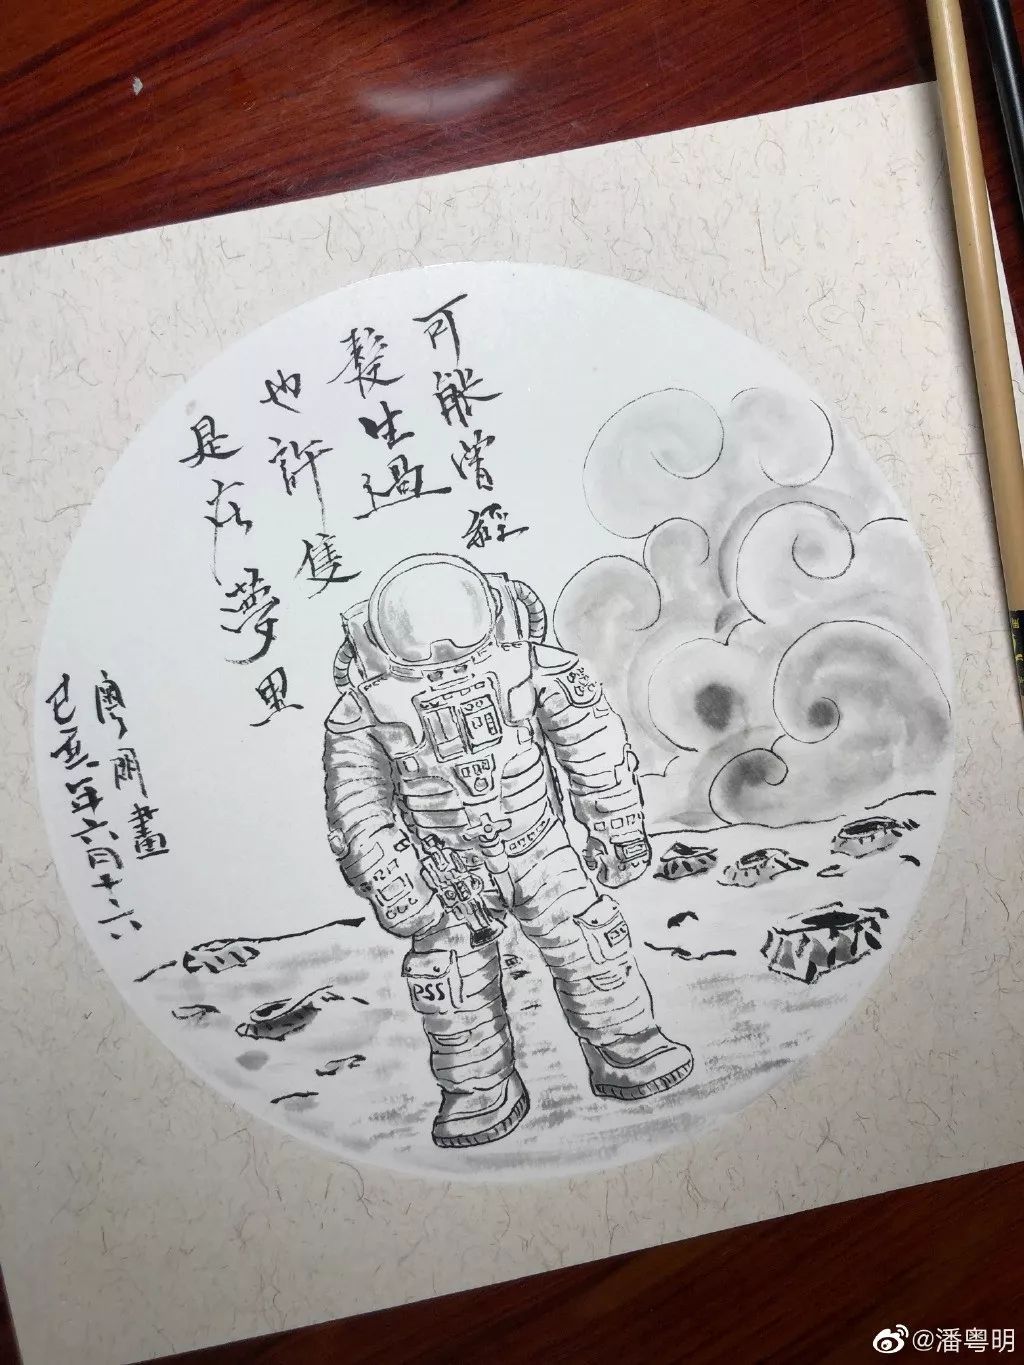 可能曾經
發生過
也許隻
是在夢里
粵明畫
己亥年六月十六
PSS
@潘粤明